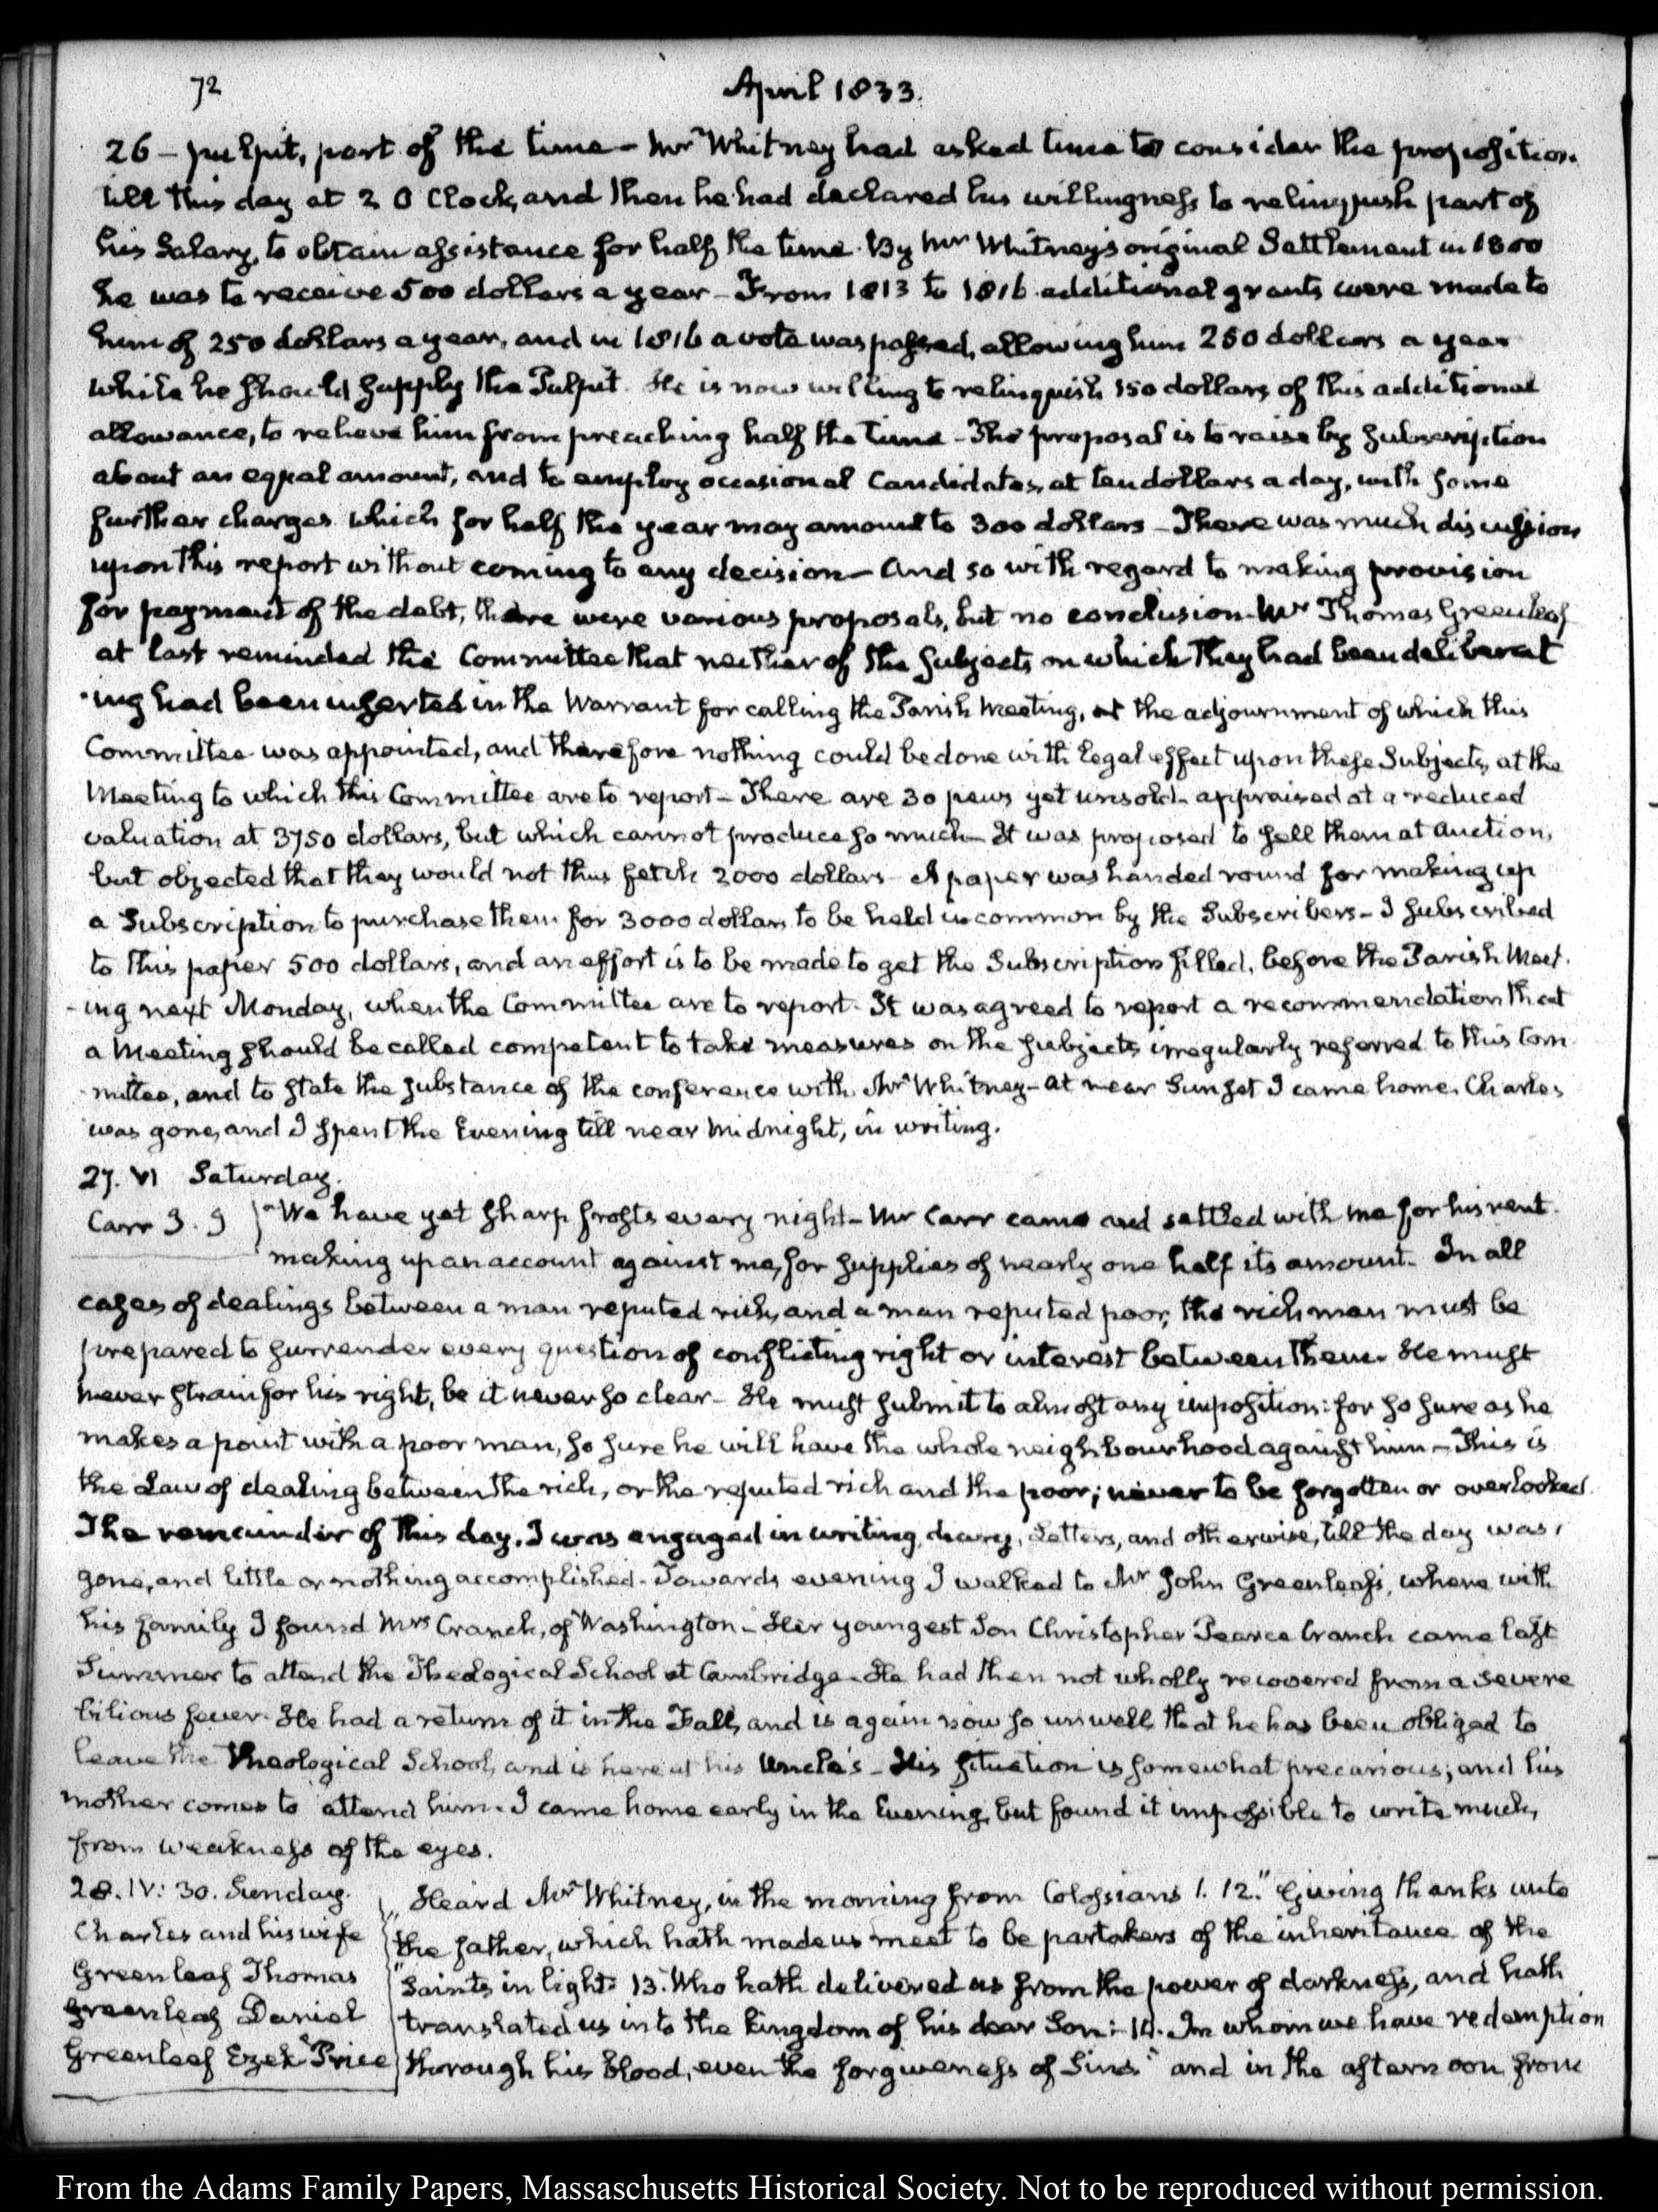 72
April 1833.
26 – pulpit, part of the time – Mr Whitney had asked time to consider the proposition
till this day at 2 O Clock, and then he had declared his willingness to relinquish part of
his Salary, to obtain assistance for half the time. By Mr Whitney's original Settlement in 1800
he was to receive 500 dollars a year – From 1813 to 1816 additional grants were made to
him of 250 dollars a year, and in 1816 a vote was passed, allowing him 250 dollars a year
while he should supply the Pulpit. He is now willing to relinquish 150 dollars of this additional
allowance, to relieve him from preaching half the time – The proposal is to raise by subscription
about an equal amount, and to employ occasional Candidates, at ten dollars a day, with some
further charges which for half the year may amount to 300 dollars – There was much discussion
upon this report without coming to any decision – And so with regard to making provision
for payment of the debt, there were various proposals, but no conclusion – Mr Thomas Greenleaf
at last reminded the Committee that neither of the subjects on which they had been deliberat
-ing had been inserted in the Warrant for calling the Parish Meeting, at the adjournment of which this
Committee was appointed, and therefore nothing could be done with legal effect upon these Subjects, at the
Meeting to which this Committee are to report – There are 30 pews yet unsold – appraised at a reduced
valuation at 3750 dollars, but which cannot produce so much – It was proposed to sell them at auction,
but objected that they would not thus fetch 2000 dollars – A paper was handed round for making up
a Subscription to purchase them for 3000 dollars to be held in common by the Subscribers – I subscribed
to this paper 500 dollars, and an effort is to be made to get the Subscription filled, before the Parish Meet.
-ing next Monday, when the Committee are to report. It was agreed to report a recommendation that
a Meeting should be called competent to take measures on the subjects irregularly referred to this Com
-mittee, and to state the substance of the conference with Mr Whitney – At near Sunset I came home. Charles
was gone, and I spent the Evening till near Midnight, in writing.
27. VI Saturday.
Carr 3. 9
We have yet sharp frosts every night – Mr Carr came and settled with me for his rent.
making up an account against me, for supplies of nearly one half its amount. In all
cases of dealings between a man reputed rich, and a man reputed poor, the rich man must be
prepared to surrender every question of conflicting right or interest between them. He must
never strain for his right, be it never so clear – He must submit to almost any imposition: for so sure as he
makes a point with a poor man, so sure he will have the whole neighbourhood against him – This is
the Law of dealing between the rich, or the reputed rich and the poor; never to be forgotten or overlooked.
The remainder of this day, I was engaged in writing, diary, Letters, and otherwise, till the day was
gone, and little or nothing accomplished – Towards evening I walked to Mr John Greenleaf's, where with
his family I found Mrs Cranch, of Washington – Her youngest Son Christopher Pearce Cranch came last
Summer to attend the Theological School at Cambridge – He had then not wholly recovered from a severe
bilious fever. He had a return of it in the Fall, and is again now so unwell that he has been obliged to
leave the Theological School, and is here at his Uncle's – His situation is somewhat precarious; and his
mother comes to attend him. I came home early in the Evening, but found it impossible to write much,
from weakness of the eyes.
28. IV: 30. Sunday.
Charles and his wife
Greenleaf Thomas
Greenleaf Daniel
Greenleaf Ezekl Price
Heard Mr Whitney, in the morning from Colossians 1. 12. "Giving thanks unto
"the father, which hath made us meet to be partakers of the inheritance of the
"Saints in light: 13. Who hath delivered us from the power of darkness, and hath
translated us into the kingdom of his dear Son: 14. In whom we have redemption
thorough his blood, even the forgiveness of Sins" and in the afternoon from
From the Adams Family Papers, Massaschusetts Historical Society. Not to be reproduced without permission.